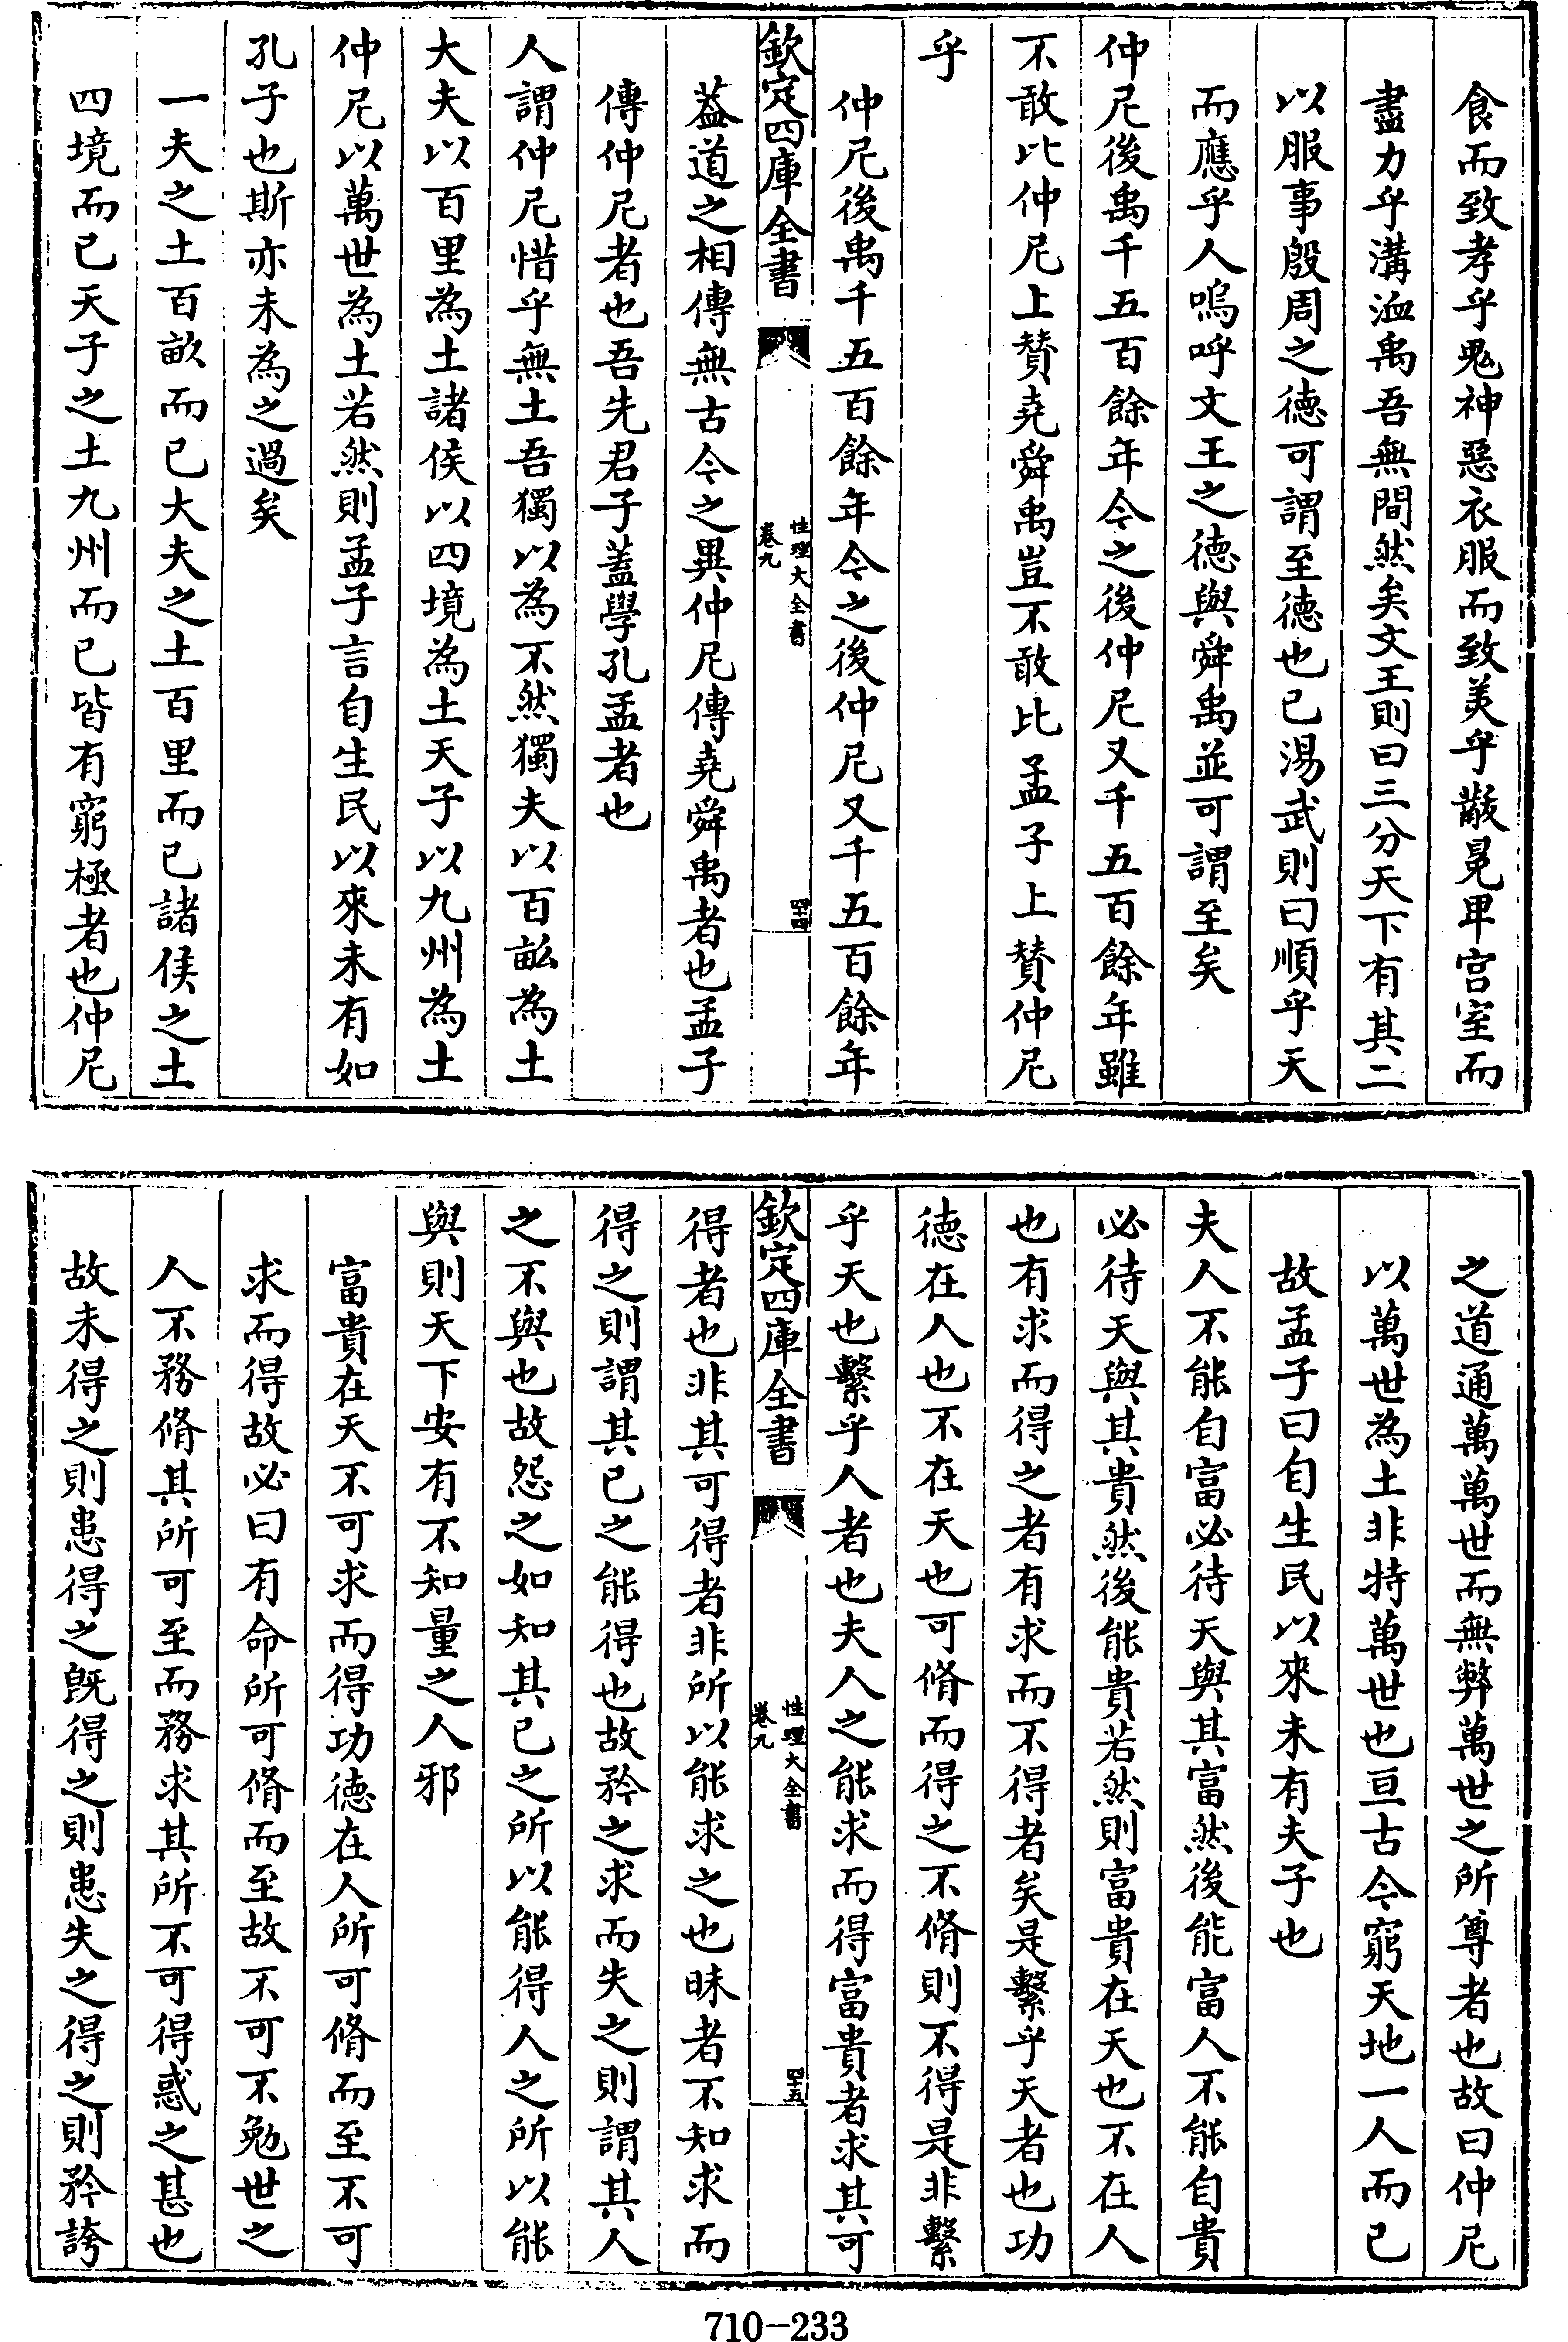 食而致孝乎鬼神惡衣服而致美乎黻冕卑宫室而
盡力乎溝洫禹吾無間然矣文王則曰三分天下有其二
以服事殷周之德可謂至德也已湯武則曰順乎天
而應乎人嗚呼文王之德與舜禹並可謂至矣
仲尼後禹千五百餘年今之後仲尼又千五百餘年雖
不敢比仲尼上贊堯舜禹豈不敢比孟子上贊仲尼
乎
仲尼後禹千五百餘年今之後仲尼又千五百餘年
欽定四庫全書
性理大全書
卷九
四十四
葢道之相傳無古今之異仲尼傳堯舜禹者也孟子
傳仲尼者也吾先君子蓋學孔孟者也
人謂仲尼惜乎無土吾獨以為不然獨夫以百畝為土
大夫以百里為土諸侯以四境為土天子以九州為土
仲尼以萬世為土若然則孟子言自生民以來未有如
孔子也斯亦未為之過矣
一夫之土百畝而已大夫之土百里而已諸侯之土
四境而已天子之土九州而已皆有窮極者也仲尼
之道通萬萬世而無弊萬世之所尊者也故曰仲尼
以萬世為土非特萬世也亘古今窮天地一人而已
故孟子曰自生民以來未有夫子也
夫人不能自富必待天與其富然後能富人不能自貴
必待天與其貴然後能貴若然則富貴在天也不在人
也有求而得之者有求而不得者矣是繫乎天者也功
德在人也不在天也可脩而得之不脩則不得是非繫
乎天也繫乎人者也夫人之能求而得富貴者求其可
欽定四庫全書
性理大全書
卷九
四十五
得者也非其可得者非所以能求之也昧者不知求而
得之則謂其已之能得也故矜之求而失之則謂其人
之不與也故怨之如知其已之所以能得人之所以能
與則天下安有不知量之人邪
富貴在天不可求而得功德在人所可脩而至不可
求而得故必曰有命所可脩而至故不可不勉世之
人不務脩其所可至而務求其所不可得惑之甚也
故未得之則患得之既得之則患失之得之則矜誇
710-233